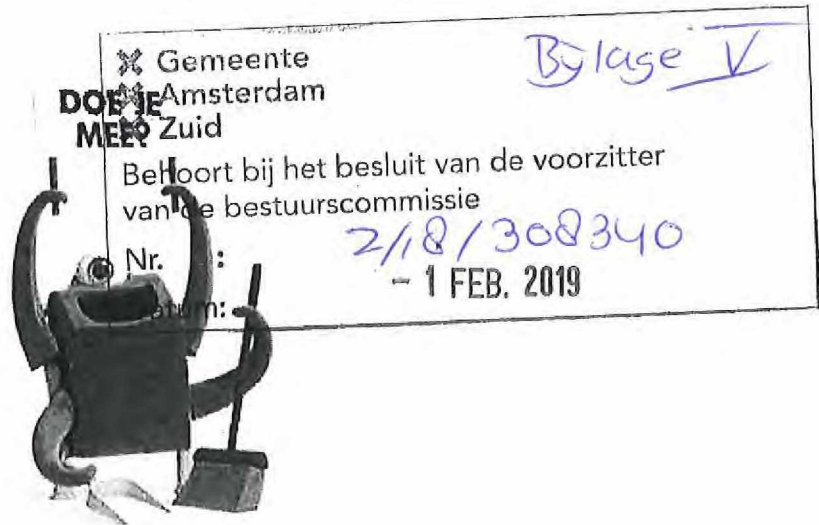 Gemeente
Amsterdam
Zuid
Bijlage V
DOE JE
MEE?
Behoort bij het besluit van de voorzitter
van de bestuurscommissie
Nr. : 2/18/308340
Datum: - 1 FEB. 2019